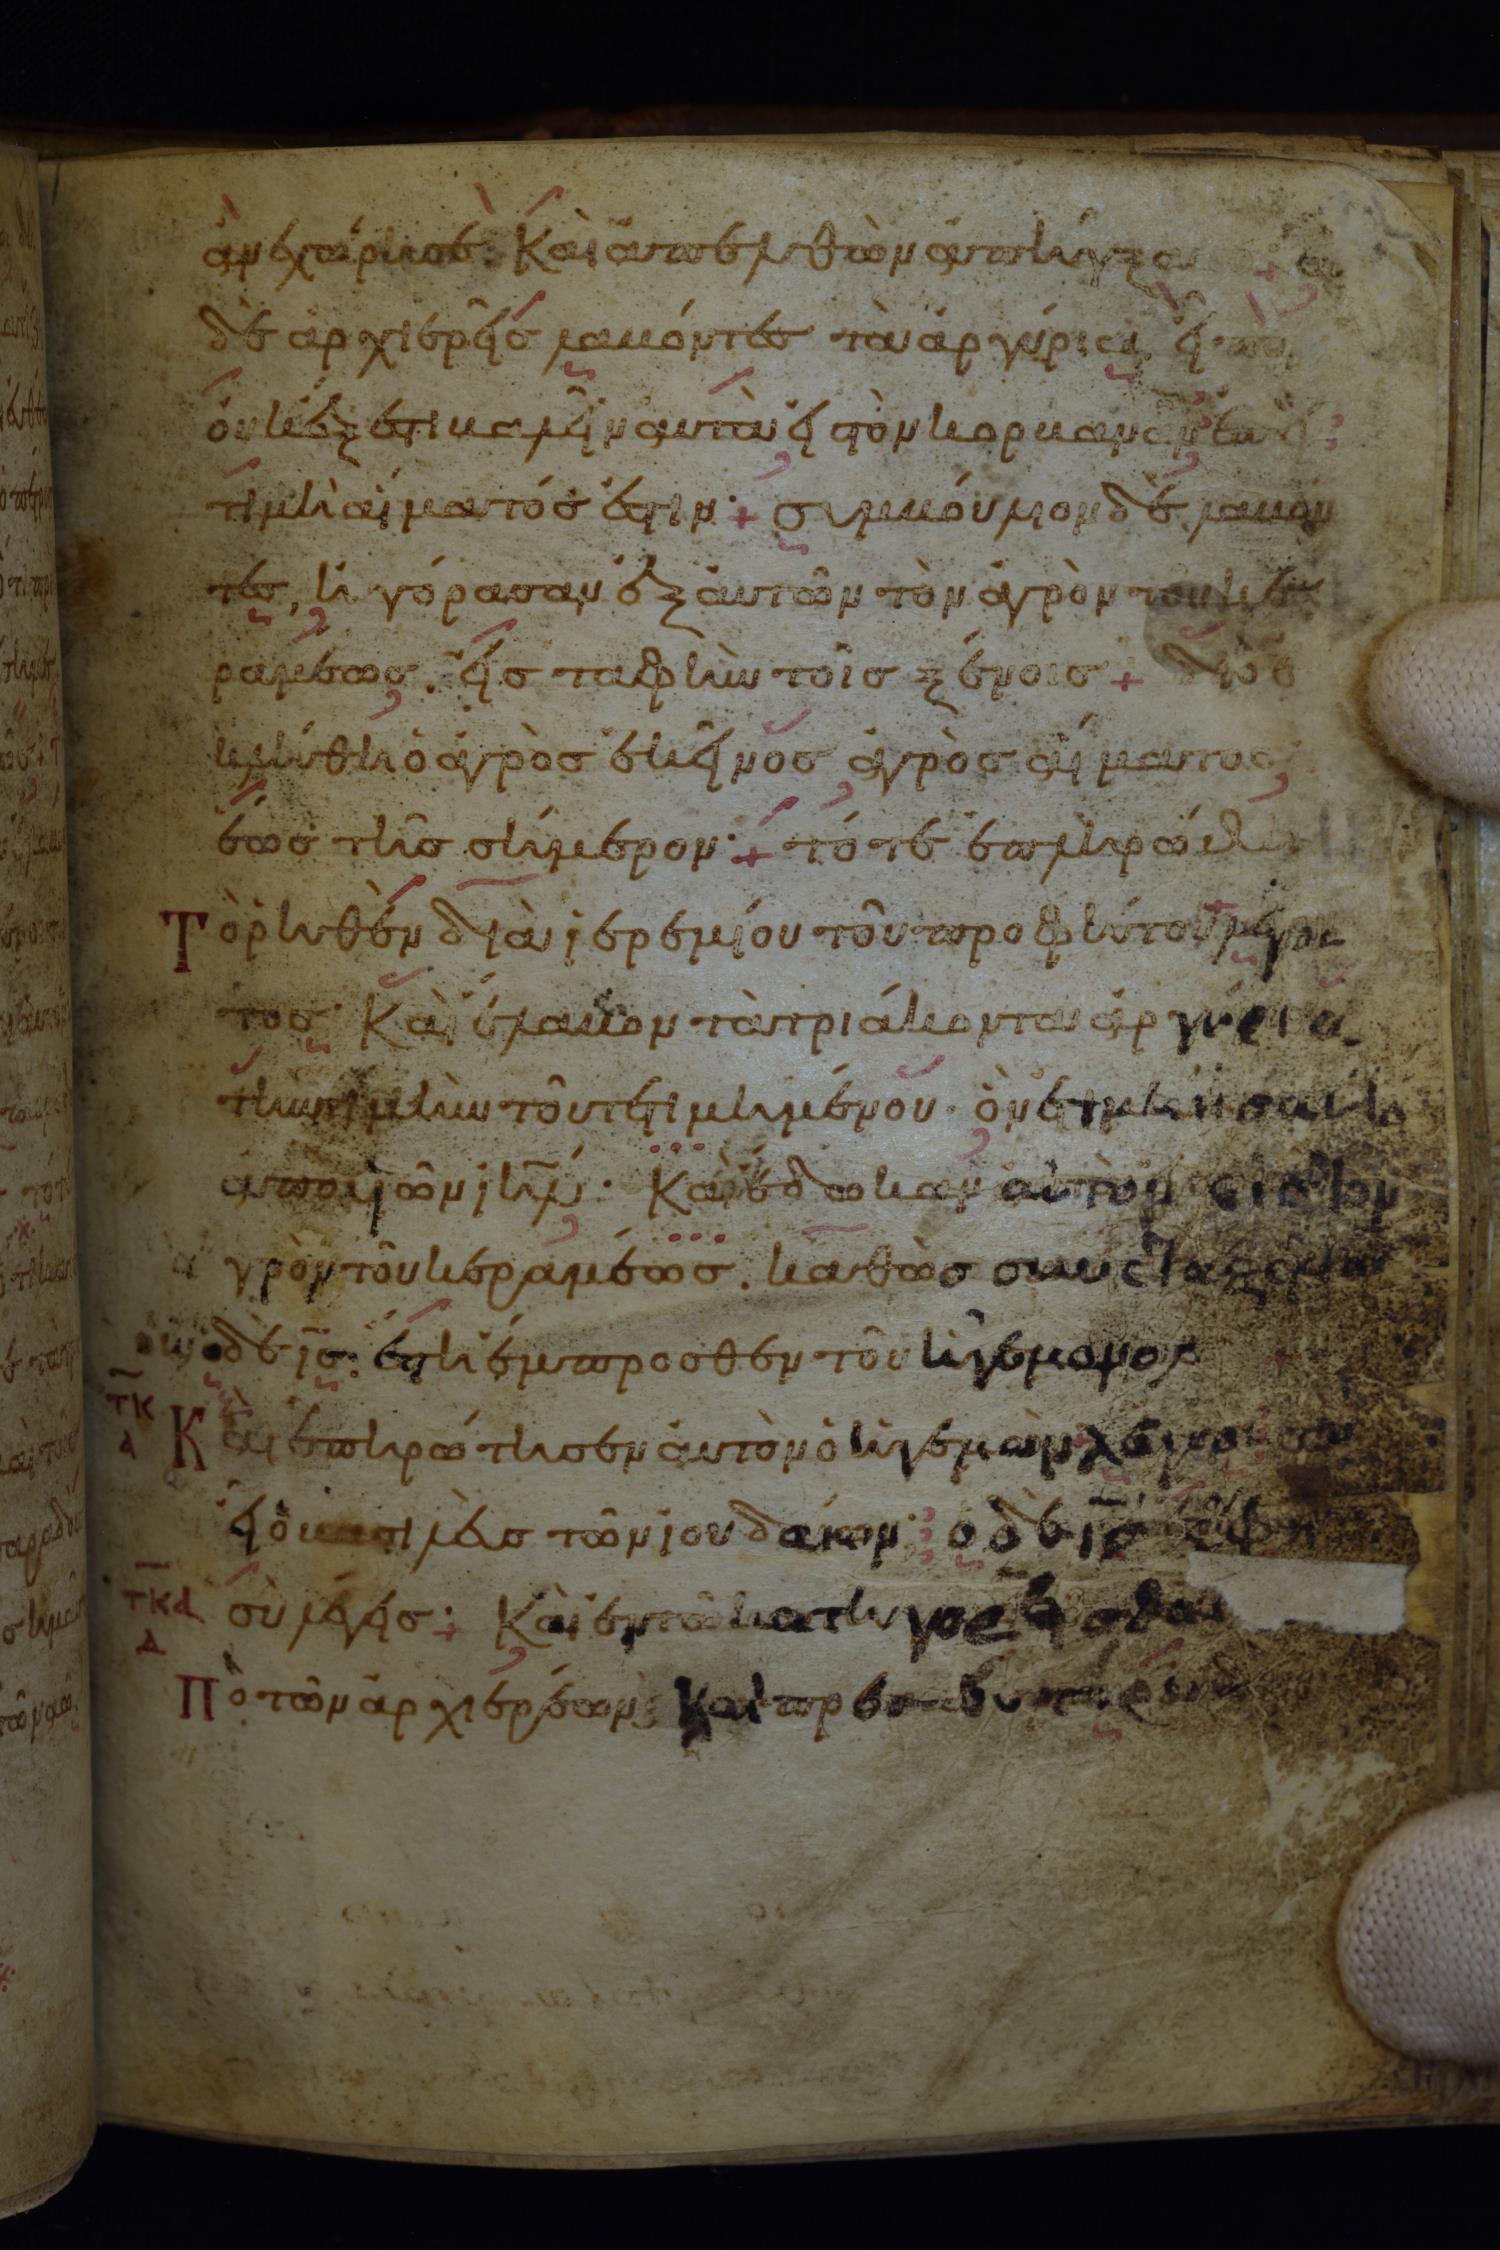 ἀνεχώρησε. Καὶ ἀπελθὼν ἀπήγξα
δὲ ἀρχιερεῖς λαβόντες τὰ ἀργύρια εἶπον
οὐκ ἔξεστι βαλεῖν αὐτὰ εἰς τὸν κορβανὰν ἐπεὶ
τιμὴ αἵματός ἐστιν· + συμβούλιον δὲ λαβόν
τες, ἠγόρασαν ἐξ αὐτῶν τὸν ἀγρὸν τοῦ κε
ραμέως. εἰς ταφὴν τοῖς ξένοις + διὸ
ἐκλήθη ὁ ἀγρὸς ἐκεῖνος ἀγρὸς αἵματος
ἕως τῆς σήμερον· + τότε ἐπληρώθη
Τὸ ῥηθὲν διὰ ἱερεμίου τοῦ προφήτου λέγον
τος· Καὶ ἔλαβον τὰ τριάκοντα ἀργύρια
τὴν τιμὴν τοῦ τετιμημένου· ὃν ἐτιμήσαντο
ἀπὸ υἱῶν ιηλ· Καὶ ἔδωκαν αὐτὸν εἰς τὸν
ἀγρὸν τοῦ κεραμέως. καθὼς συνέταξέ μοι
ὁ δὲ ις ἔστη ἔμπροσθεν τοῦ ἡγεμόνος
τκ
α Καὶ ἐπηρώτησεν αὐτὸν ὁ ἡγεμὼν λέγων σὺ
εἶ ὁ βασιλεὺς τῶν ἰουδαίων· ὁ δὲ ις ἔφη
τκα σὺ λέγεις· + Καὶ ἐν τῶ κατηγορεῖσθαι
δ
Πὸ τῶν ἀρχιερέων καὶ πρεσβυτέρων